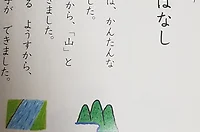 はなし
は、かんたんな
した。
から、「山」と
きました。
る ようすから、
が できました。